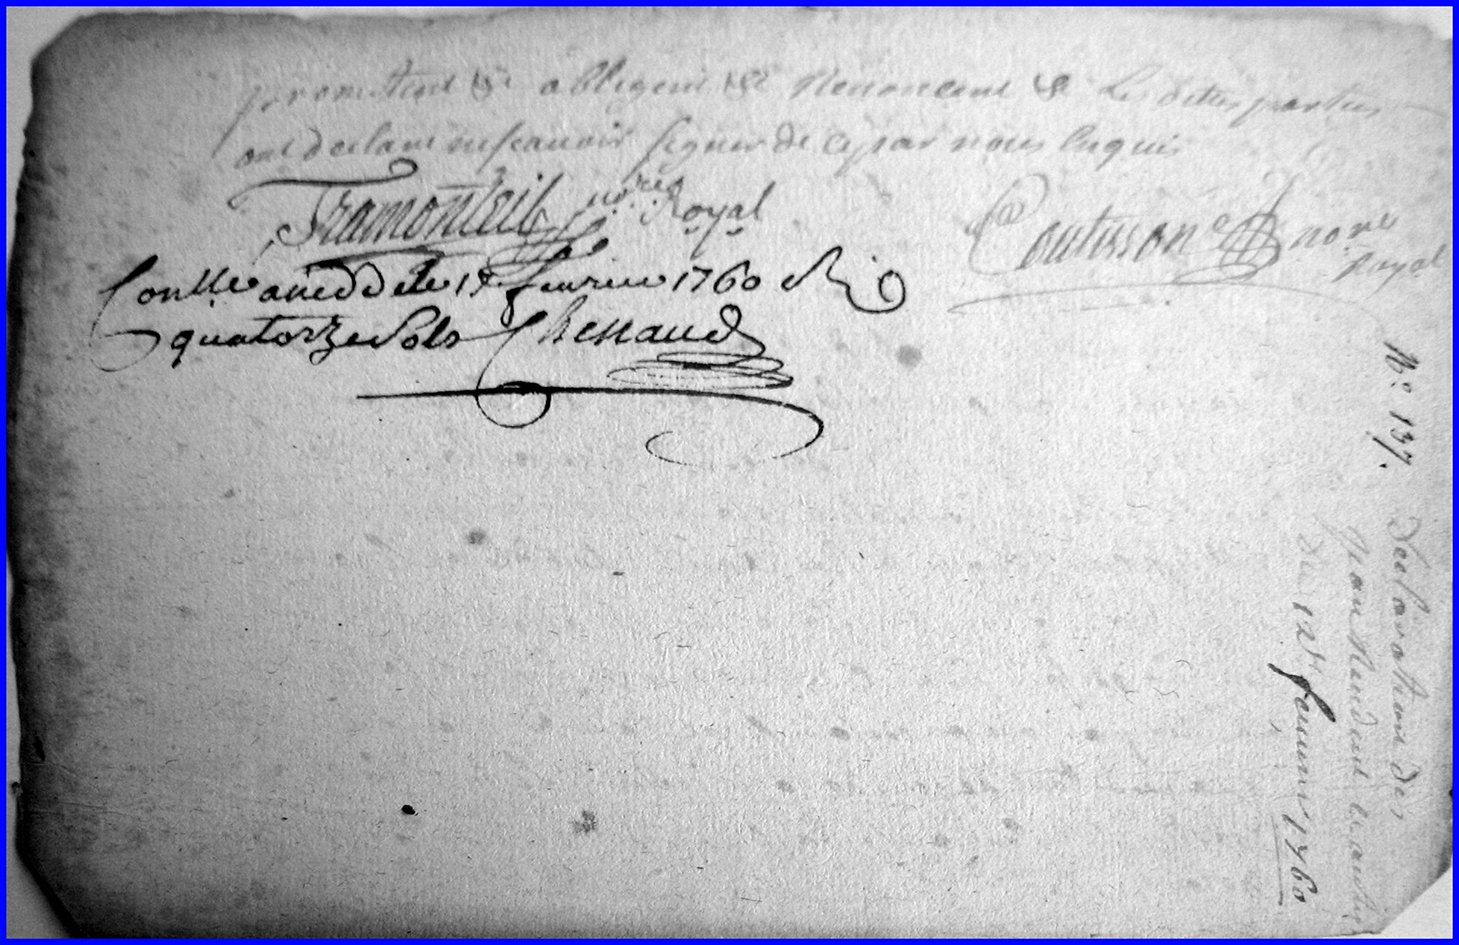 promettant &c obligent &c Renoncent &c Les dittes parties
ont declaré ne scavoir signer de ce par nous Enquis
Tramonteil nore Royal
Coutisson nore Royal
Conlle a dt le février 1760 R
quatorze sols Chessaud
No. 137.
declaration des
du 12e feuvrier 1760